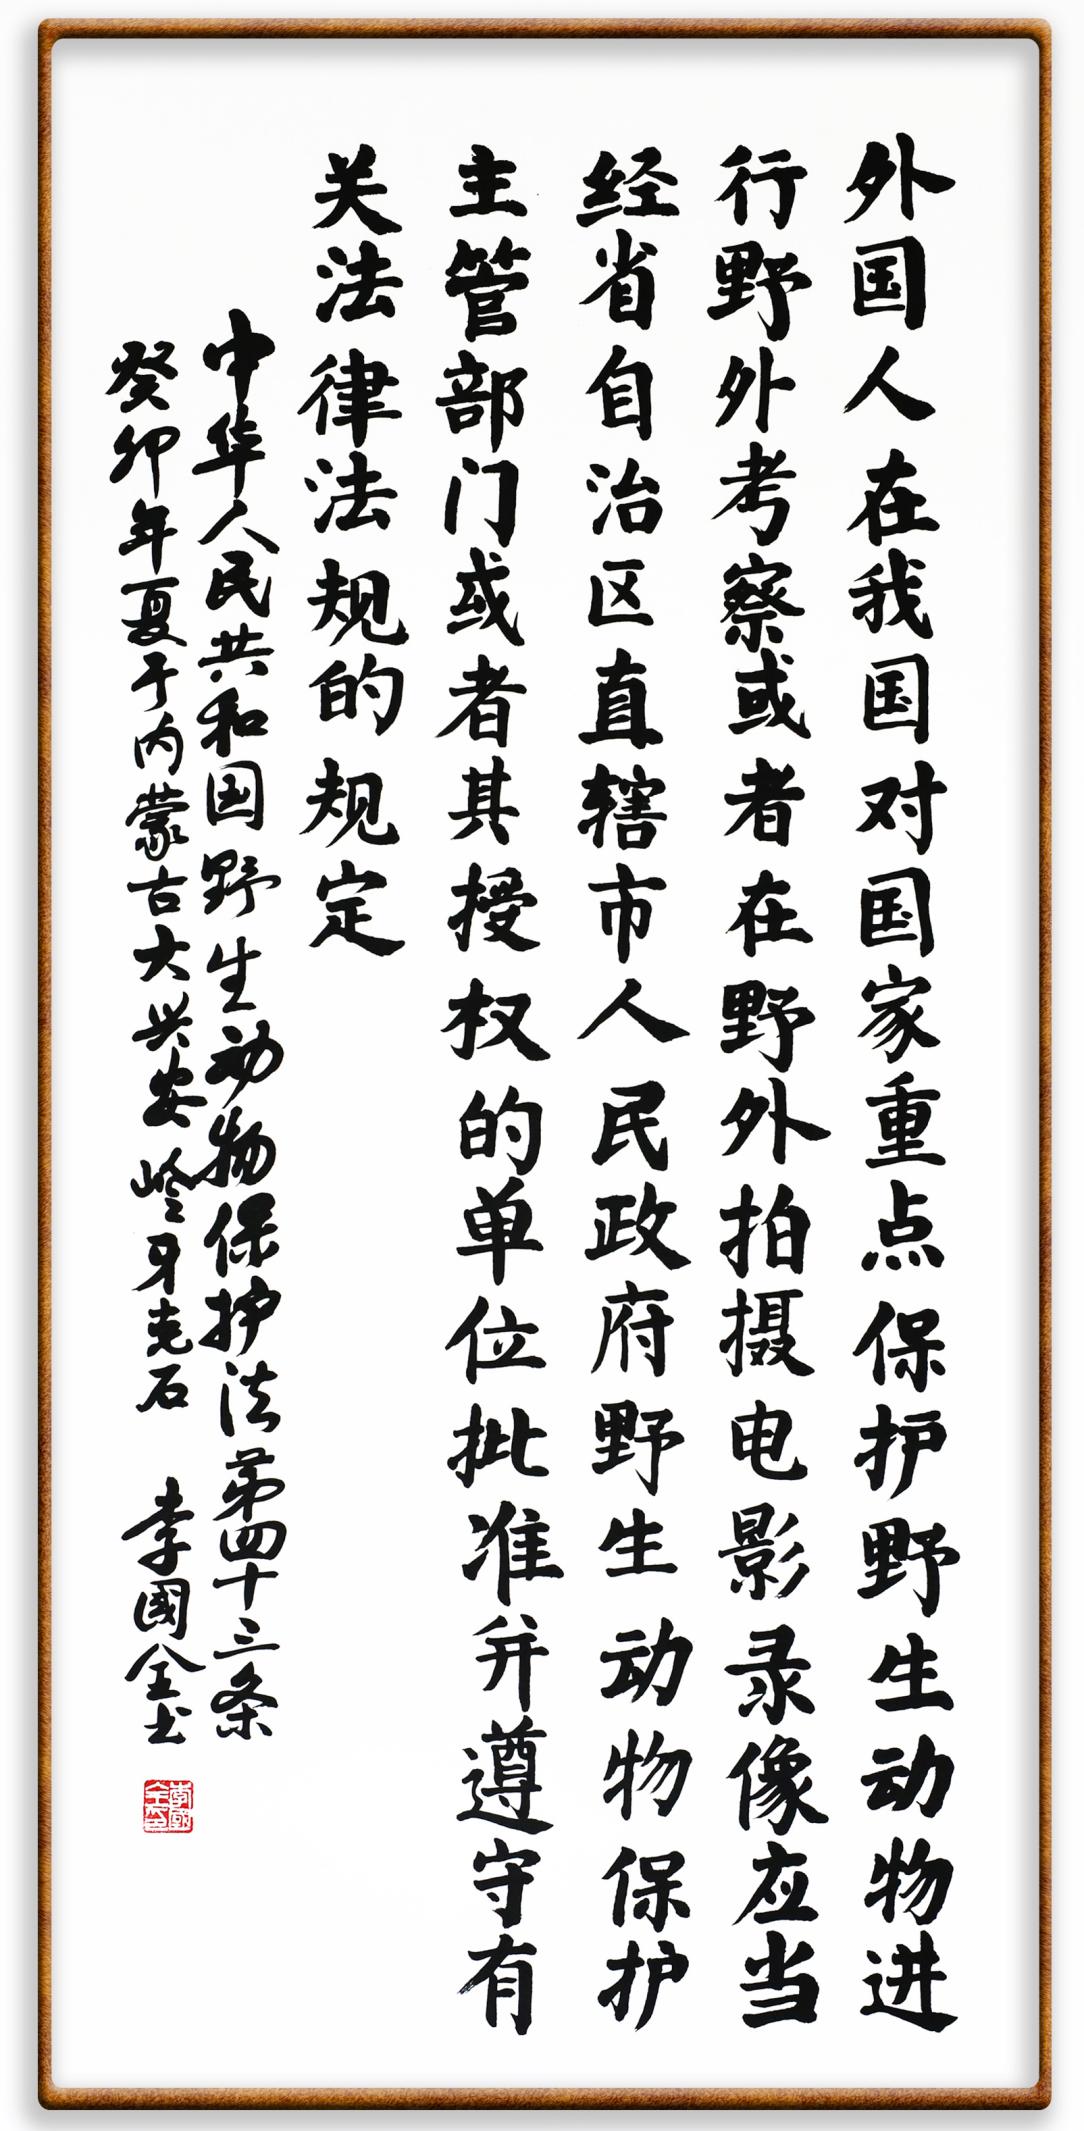 外国人在我国对国家重点保护野生动物进
行野外考察或者在野外拍摄电影录像应当
经省自治区直辖市人民政府野生动物保护
主管部门或者其授权的单位批准并遵守有
关法律法规的规定
中华人民共和国野生动物保护法第四十三条
癸卯年夏于内蒙古大兴安岭牙克石 李國全书
李國全印